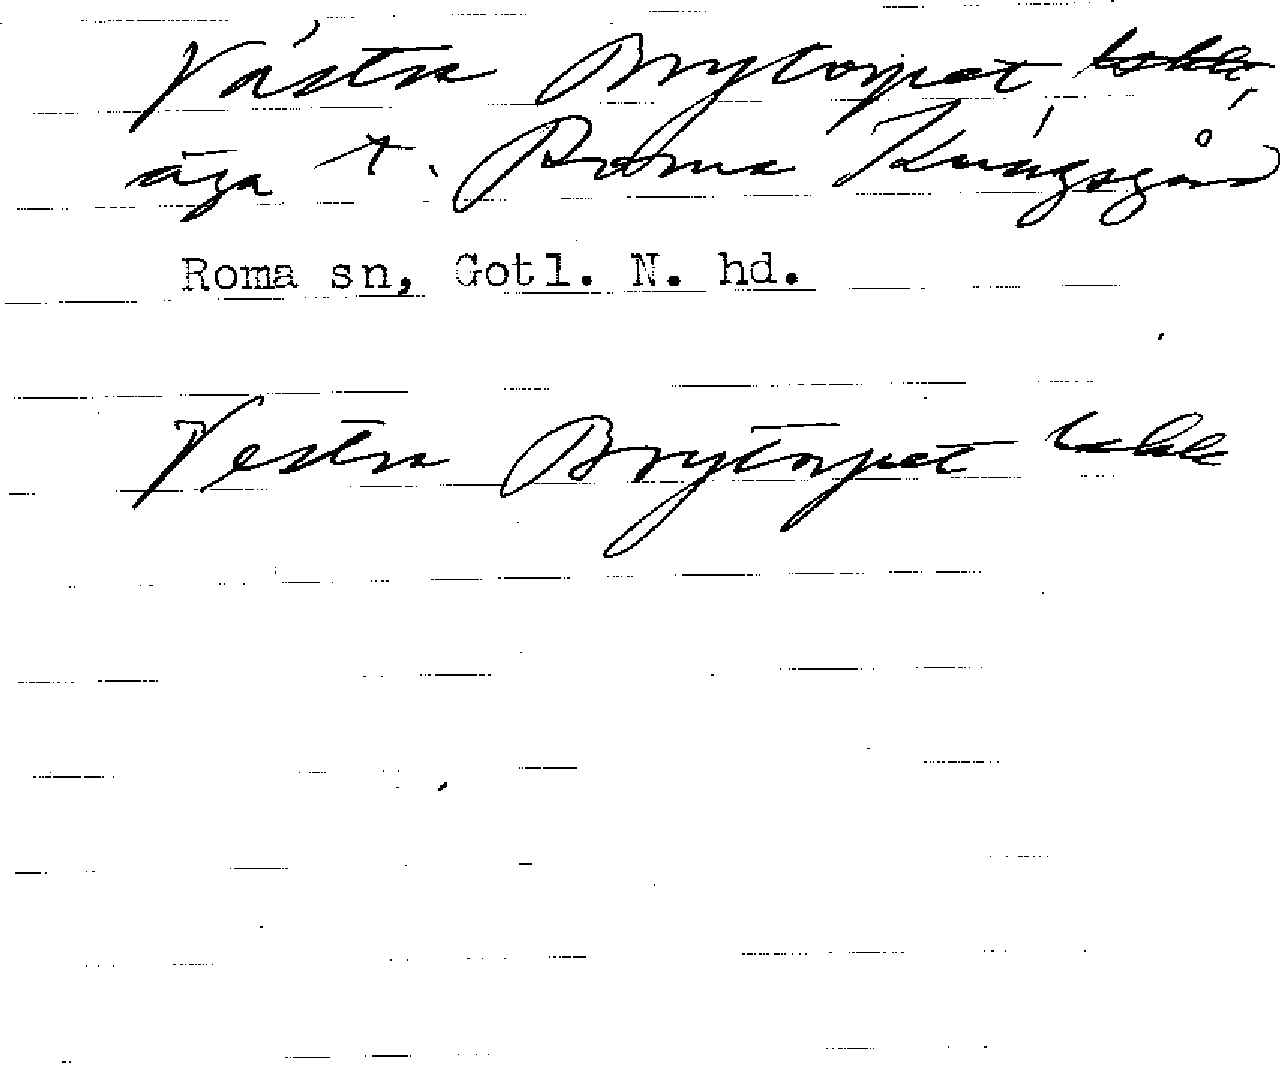 Västra Brytorpet
äga t. Roma Kungsgård
Roma sn, Gotl. N. hd.
Vestra Brytorpet